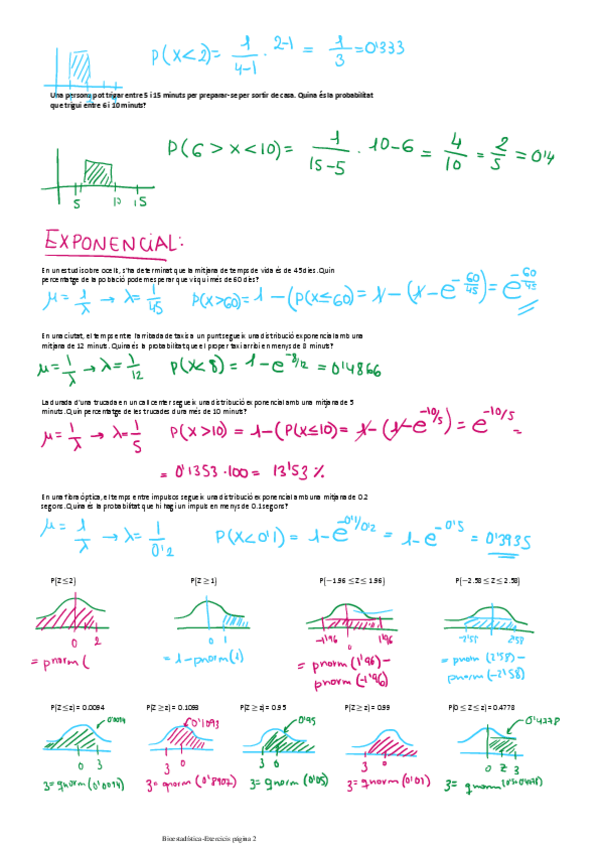 P(X<2) = 1/(4-1) · 2-1 = 1/3 = 0'333
Una persona pot trigar entre 5 i 15 minuts per preparar-se per sortir de casa. Quina és la probabilitat
que trigui entre 6 i 10 minuts?
P(6 > X < 10) = 1/(15-5) · 10-6 = 4/10 = 2/5 = 0'4
5 10 15
EXPONENCIAL:
En un estudi sobre ocells, s'ha determinat que la mitjana de temps de vida és de 45 dies. Quin
percentatge de la població podem esperar que visqui més de 60 dies?
μ = 1/λ → λ = 1/45 P(X>60) = 1-(P(X≤60) = 1-(1-e^-60/45) = e^-60/45
En una ciutat, el temps entre l'arribada de taxis a un punt segueix una distribució exponencial amb una
mitjana de 12 minuts. Quina és la probabilitat que el proper taxi arribi en menys de 8 minuts?
μ = 1/λ → λ = 1/12 P(X<8) = 1-e^-8/12 = 0'4866
La durada d'una trucada en un call center segueix una distribució exponencial amb una mitjana de 5
minuts. Quin percentatge de les trucades dura més de 10 minuts?
μ = 1/λ → λ = 1/5 P(X>10) = 1-(P(X≤10) = 1-(1-e^-10/5) = e^-10/5 =
= 0'1353·100 = 13'53 %
En una fibra òptica, el temps entre impulsos segueix una distribució exponencial amb una mitjana de 0.2
segons. Quina és la probabilitat que hi hagi un impuls en menys de 0.1 segons?
μ = 1/λ → λ = 1/0'2 P(X<0'1) = 1-e^-0'1/0'2 = 1-e^-0'5 = 0'3935
P(Z ≤ 2) P(Z ≥ 1) P(−1.96 ≤ Z ≤ 1.96) P(−2.58 ≤ Z ≤ 2.58)
0 2 0 1 -1'96 0 1'96 -2'58 2'58
= pnorm ( = 1-pnorm(1) = pnorm (1'96) - = pnorm (2'58) -
pnorm (-1'96) pnorm (-2'58)
P(Z ≤ z) = 0.0094 P(Z ≥ z) = 0.1093 P(Z ≥ z) = 0.95 P(Z ≥ z) = 0.99 P(0 ≤ Z ≤ z) = 0.4778
0'0094 0'1093 0'95 0'4778
0 3 3 0 3 0 3 0 0 Z 3
3 = qnorm(0'0094) 3 = qnorm (0'8907) 3 = qnorm (0'05) 3 = qnorm (0'01) 3 = qnorm
Bioestadística-Exercicis página 2